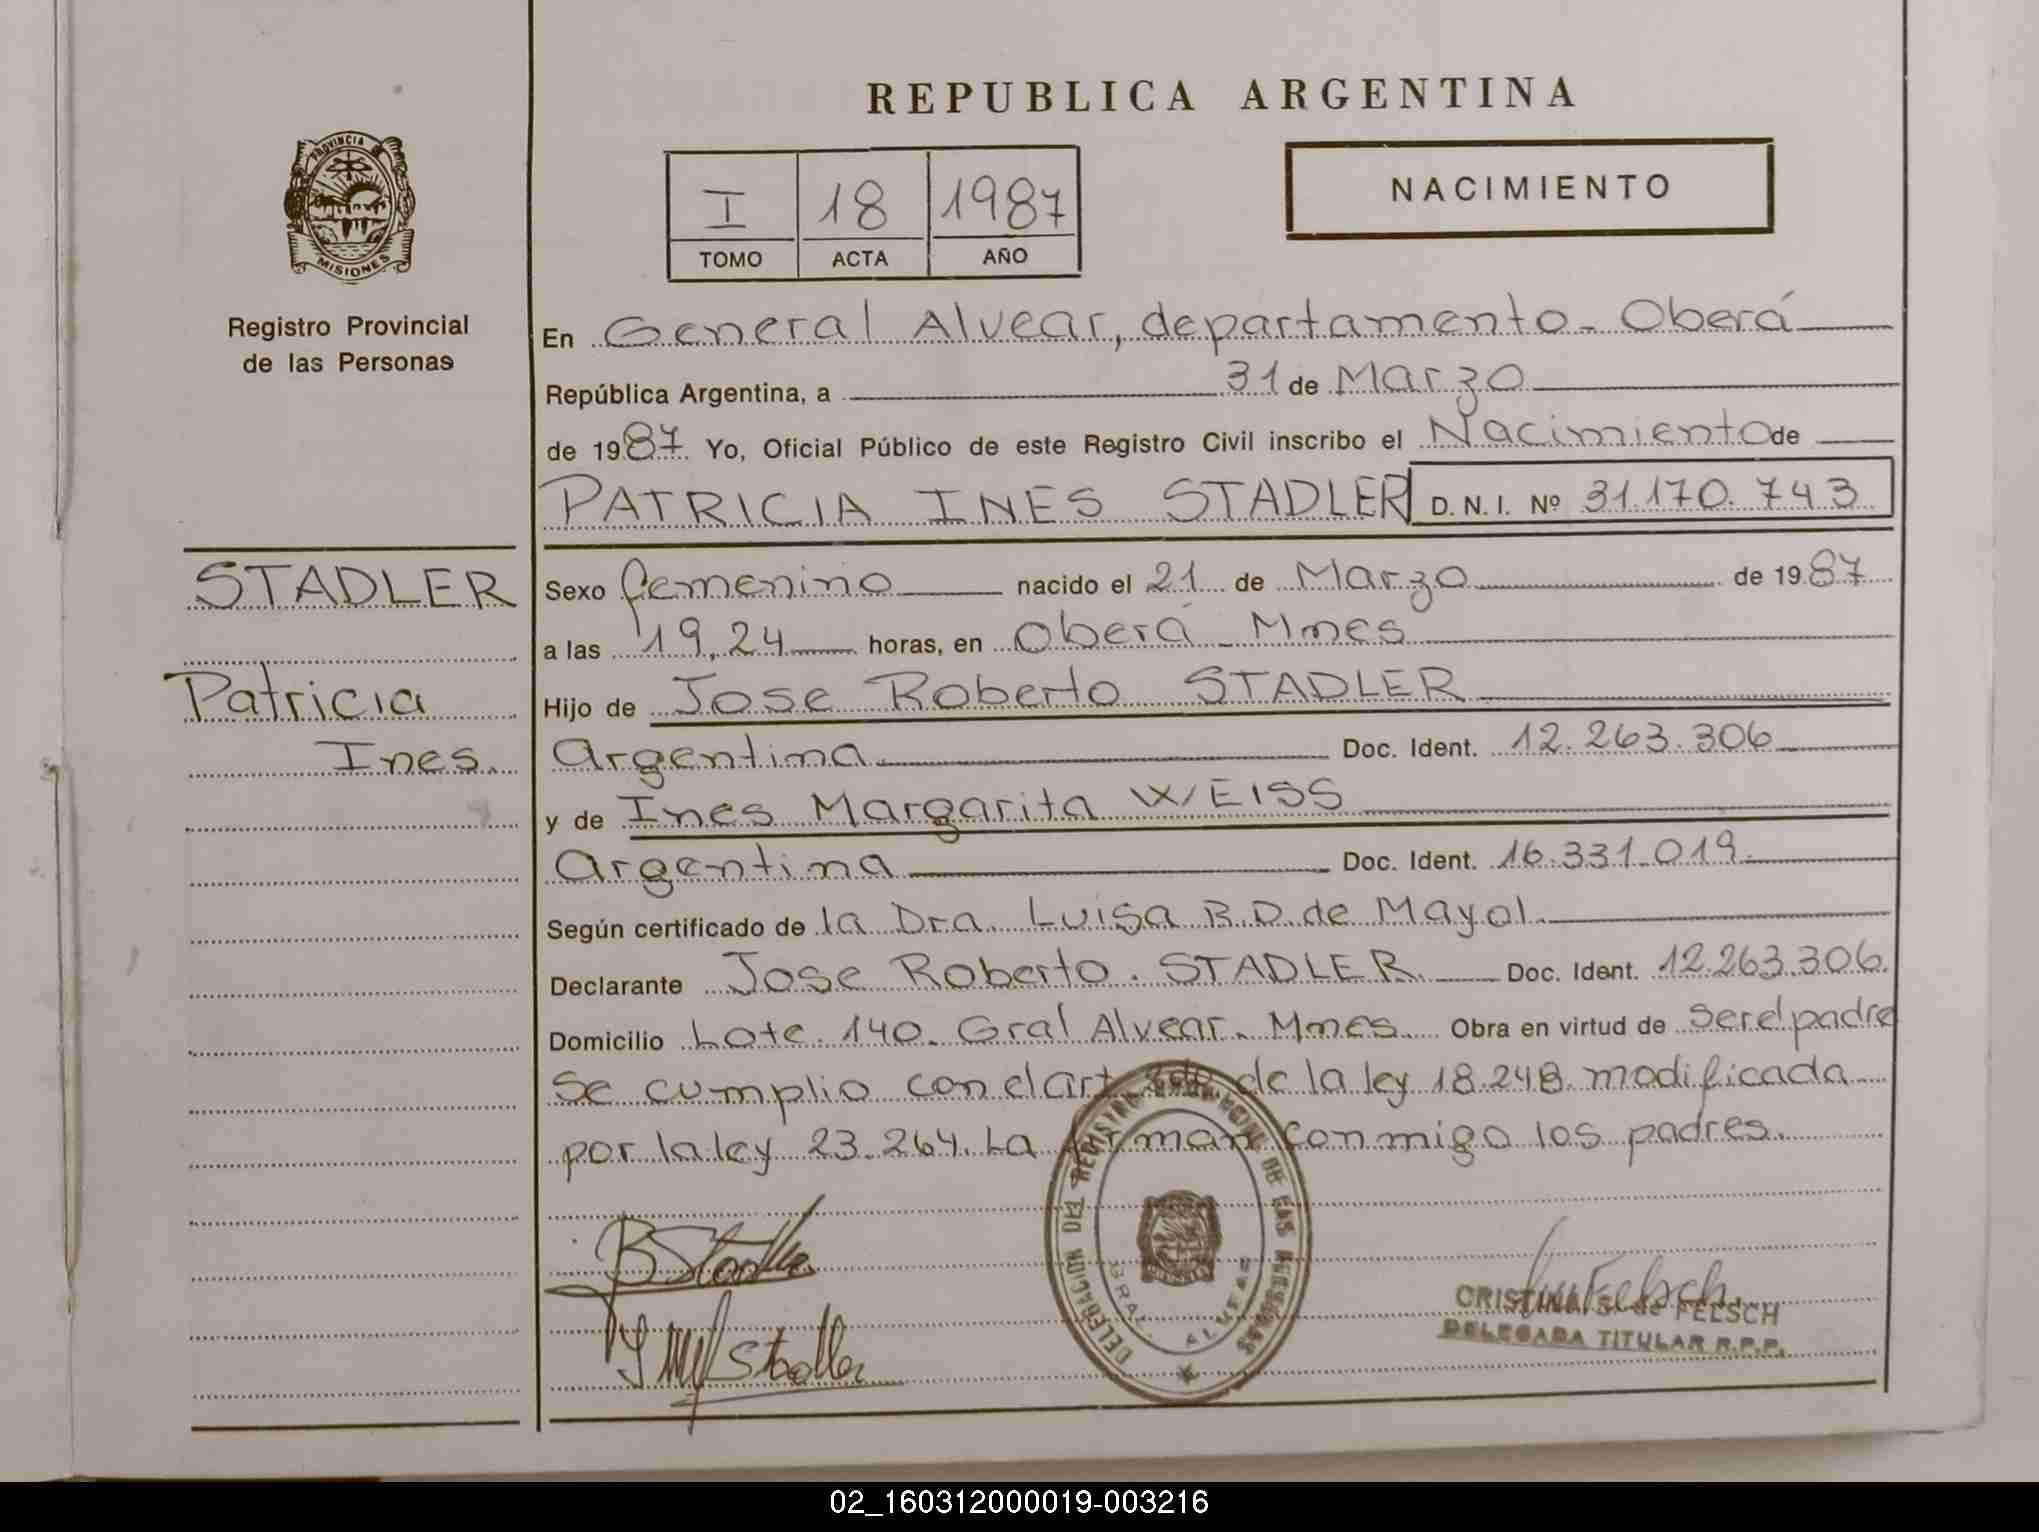 REPUBLICA ARGENTINA
PROVINCIA DE
MISIONES
Registro Provincial
de las Personas
I 18 1987
TOMO ACTA AÑO
NACIMIENTO
En General Alvear, departamento - Oberá
República Argentina, a 31 de Marzo
de 1987 Yo, Oficial Público de este Registro Civil inscribo el Nacimiento de
PATRICIA INES STADLER D. N. I. Nº 31.170.743
STADLER
Patricia
Ines.
Sexo femenino nacido el 21 de Marzo de 1987
a las 19,24 horas, en Oberá - Mnes
Hijo de Jose Roberto STADLER
Argentina Doc. Ident. 12.263.306
y de Ines Margarita WEISS
Argentina Doc. Ident. 16.331.019.
Según certificado de la Dra. Luisa B.D. de Mayol.
Declarante Jose Roberto. STADLER. Doc. Ident. 12.263.306.
Domicilio Lote 140. Gral Alvear. Mnes. Obra en virtud de ser el padre
Se cumplio con el art 2do de la ley 18.248. modificada
por la ley 23.264. La firman conmigo los padres.
DELEGACION DEL REGISTRO PROVINCIAL DE LAS PERSONAS
GRAL. ALVEAR
Stadler
Stadler
CRISTINA S. de FELSCH
DELEGADA TITULAR R.P.P.
02_160312000019-003216